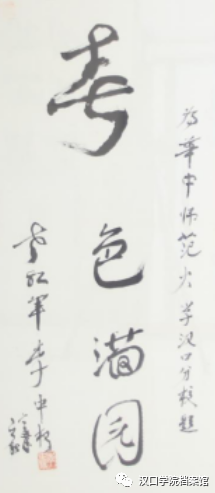 为華中师范大学汉口分校题
春色满园
老红军李中权
汉口学院档案馆